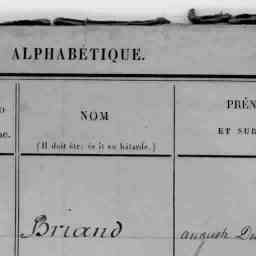 ALPHABÉTIQUE.
NOM
(Il doit être écrit en bâtarde.)
PRÉN
ET SUR
Briand
auguste